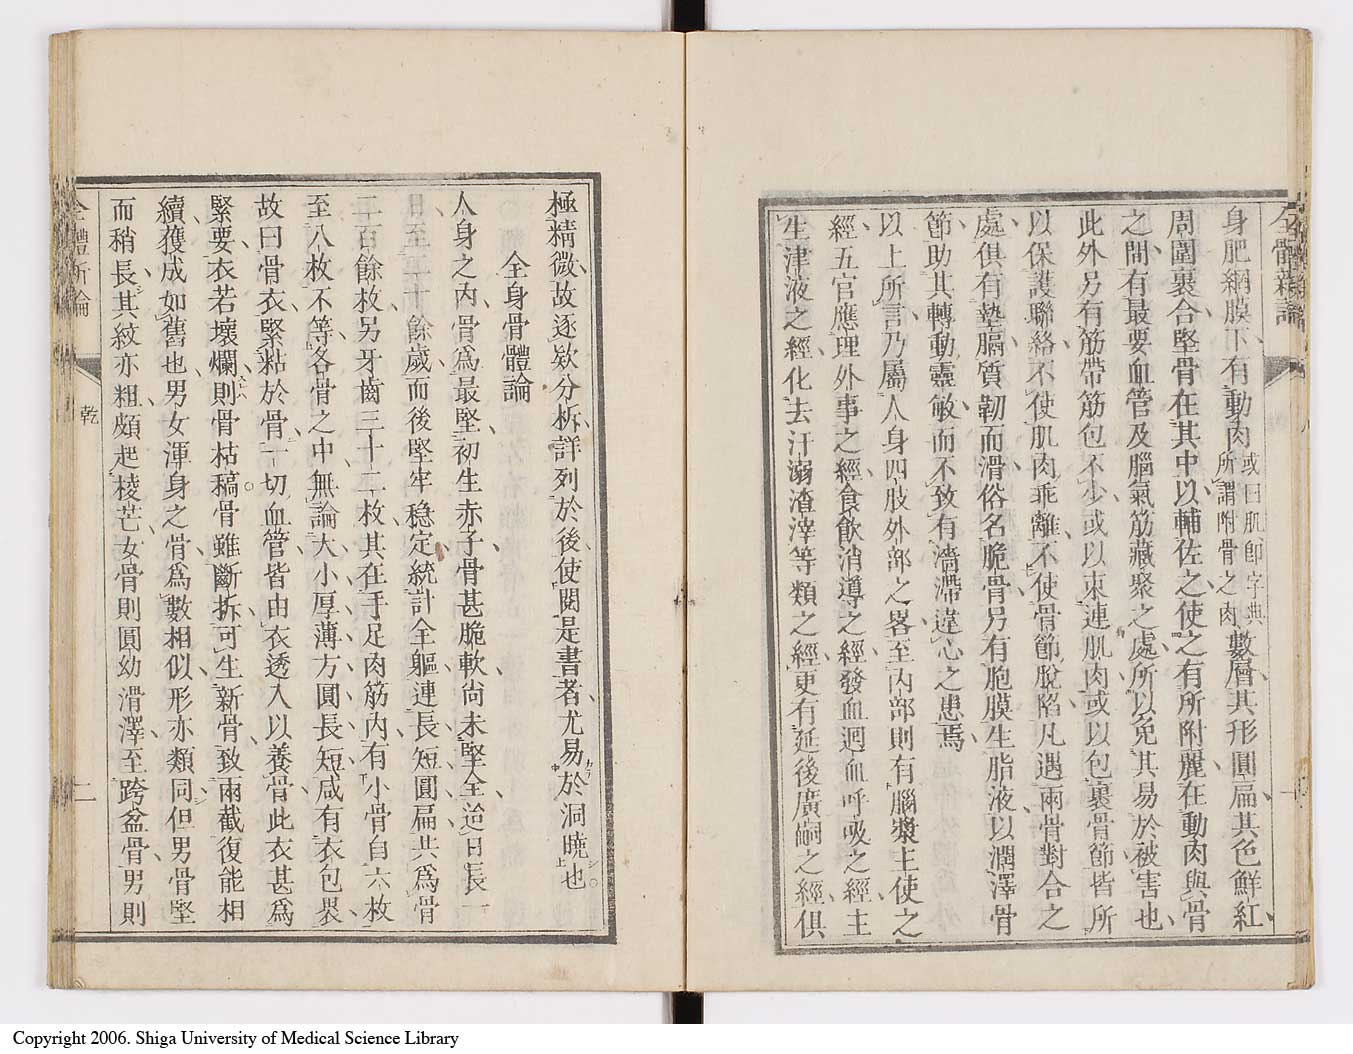 全體新論
身肥網膜下有動肉或曰肌卽字典所謂附骨之肉數層其形圓扁其色鮮紅
周圍裹合堅骨在其中以輔佐之使之有所附麗在動肉與骨
之間有最要血管及腦氣筋藏聚之處所以免其易於被害也
此外另有筋帶筋包不少或以束連肌肉或以包裹骨節皆所
以保護聯絡不使肌肉乖離不使骨節脫陷凡遇兩骨對合之
處俱有墊膈質韌而滑俗名脆骨另有胞膜生脂液以潤澤骨
節助其轉動靈敏而不致有濇滯違心之患焉
以上所言乃屬人身四肢外部之畧至內部則有腦漿主使之
經五官應理外事之經食飲消導之經發血迴血呼吸之經主
生津液之經化去汗溺渣滓等類之經更有延後廣嗣之經俱
極精微故逐欵分柝詳列於後使閱是書者尤易於洞曉也
全身骨體論
人身之內骨爲最堅初生赤子骨甚脆軟尙未堅全迨日長一
日至二十餘歲而後堅牢穩定統計全軀連長短圓扁共爲骨
二百餘枚另牙齒三十二枚其在手足肉筋內有小骨自六枚
至八枚不等各骨之中無論大小厚薄方圓長短咸有衣包裹
故曰骨衣緊粘於骨一切血管皆由衣透入以養骨此衣甚爲
緊要衣若壞爛則骨枯稿骨雖斷拆可生新骨致兩截復能相
續獲成如舊也男女渾身之骨爲數相似形亦類同但男骨堅
而稍長其紋亦粗頗起棱芒女骨則圓幼滑澤至跨盆骨男則
全體新論
乾
二
Copyright 2006. Shiga University of Medical Science Library